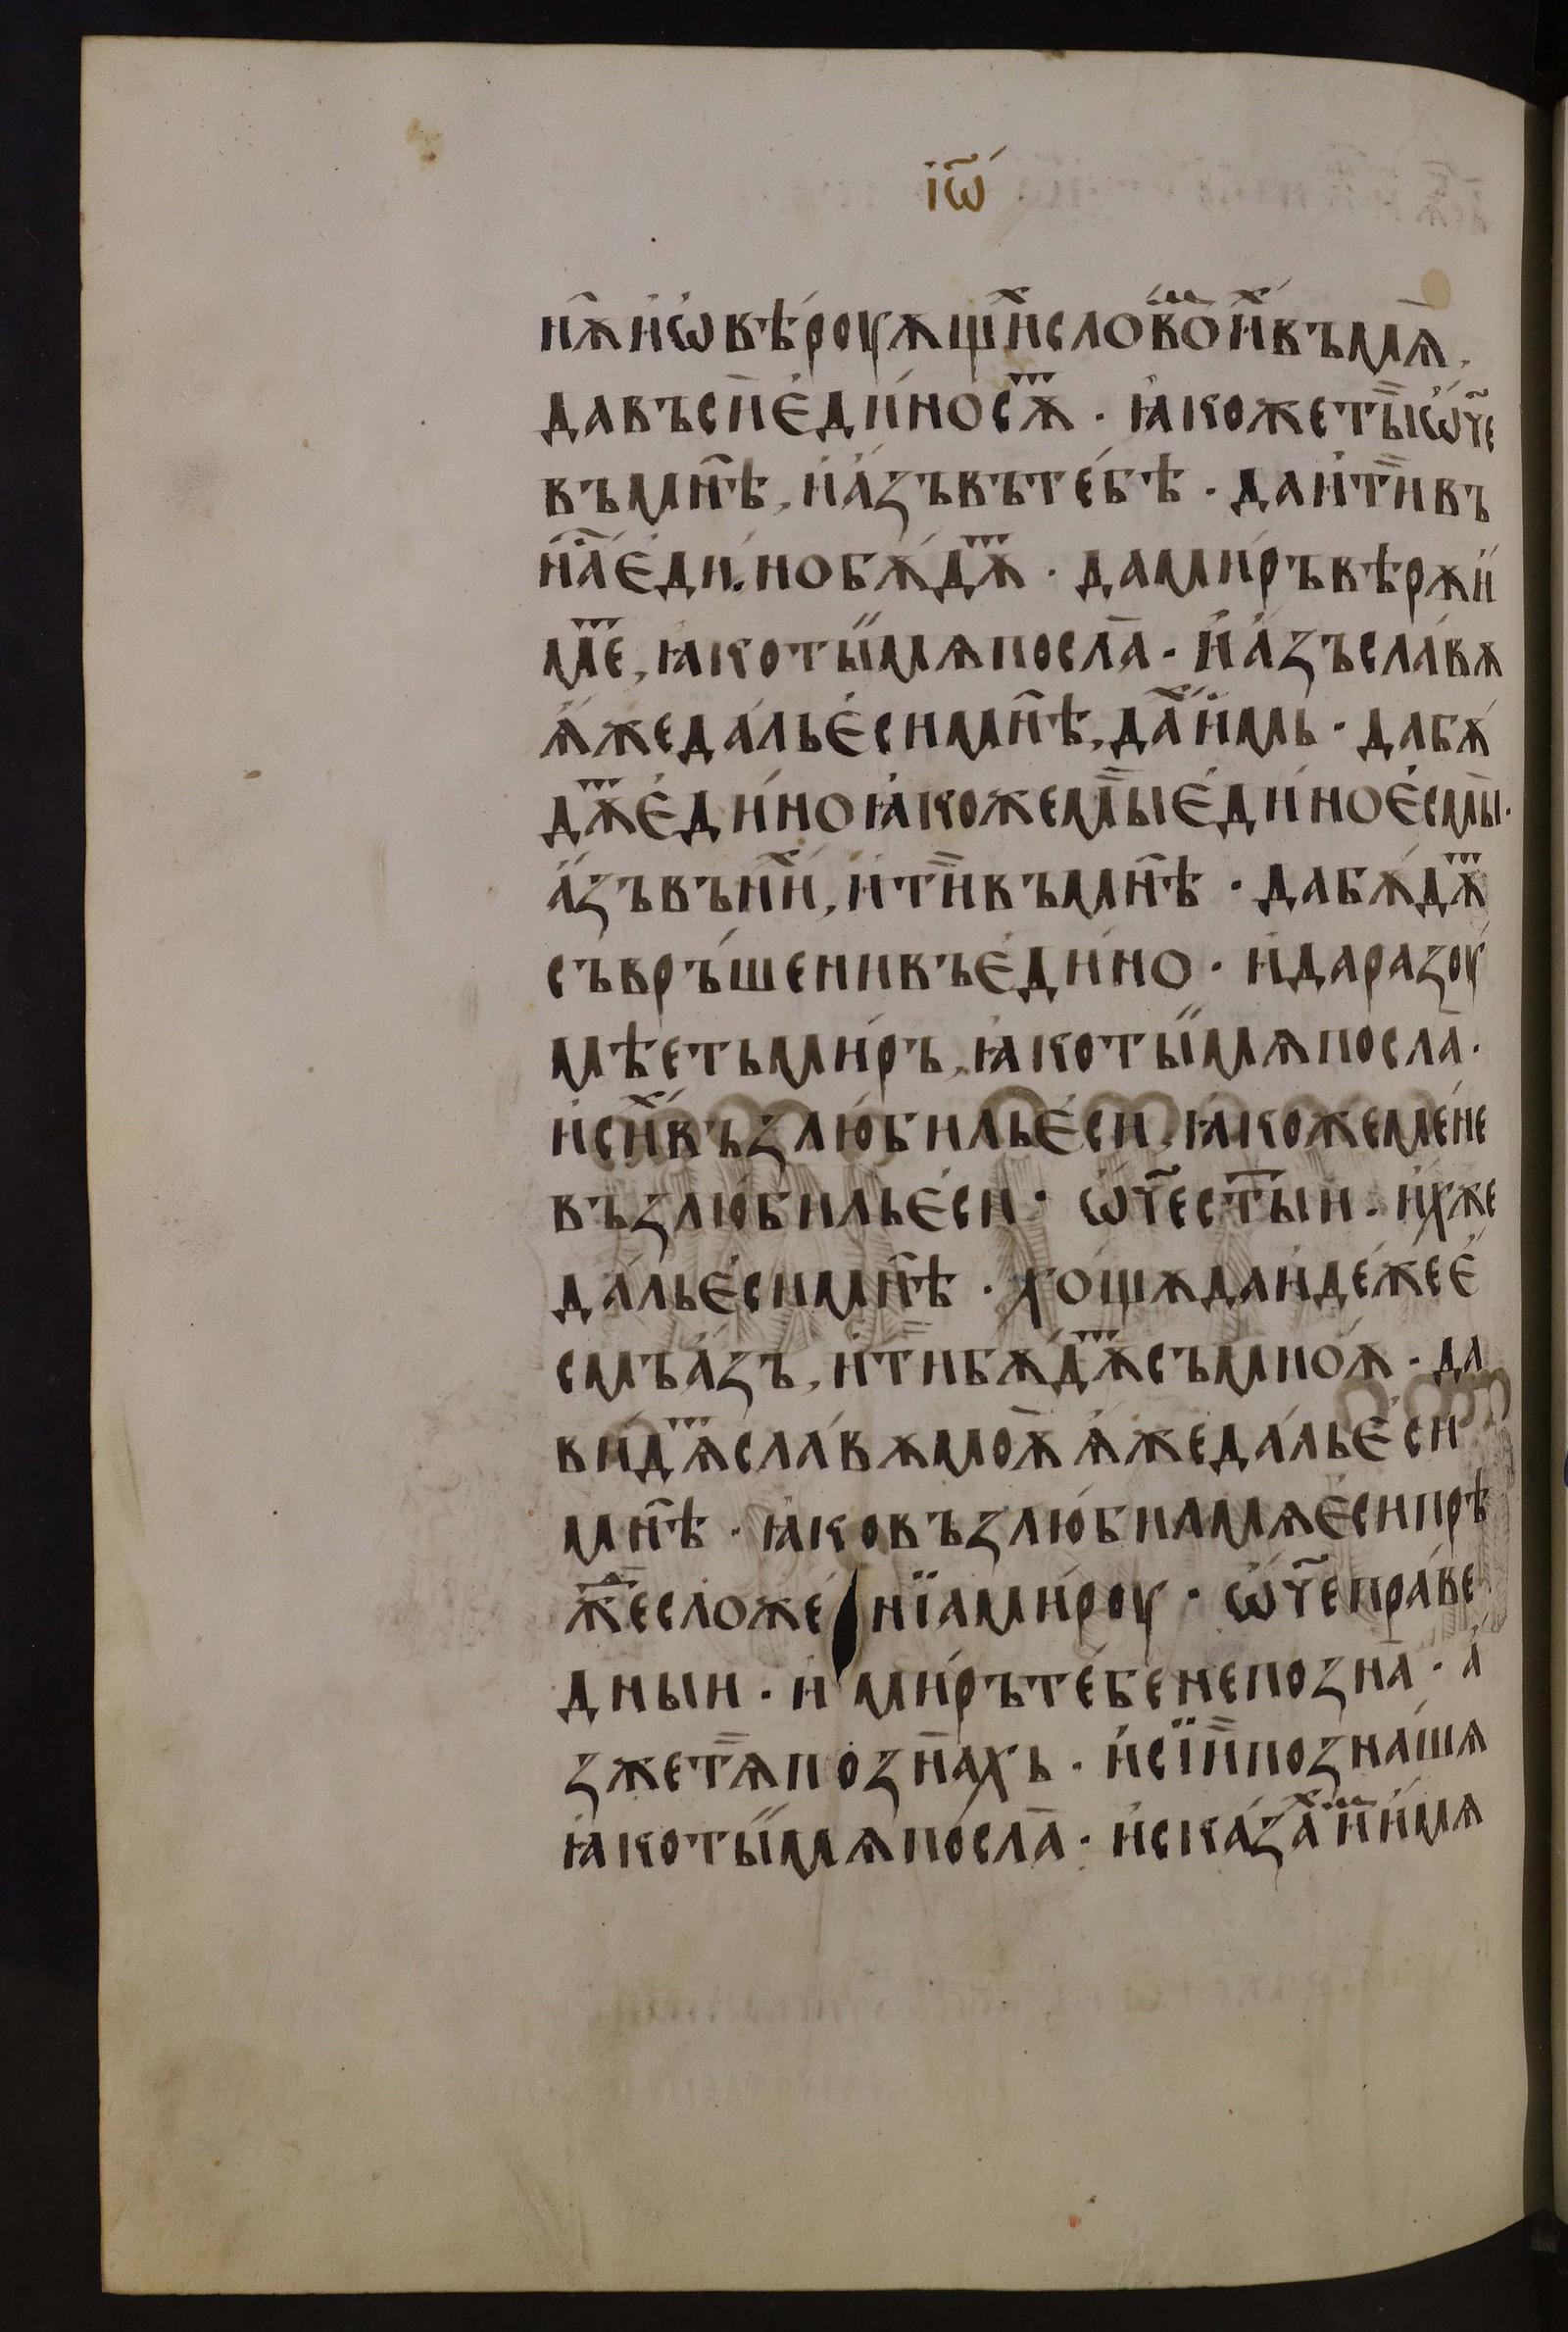 іѡ҃
нѫ и҆ ѡ҆ вѣ́роуѫщиⷯ словоⷨ иⷯ въ мѧ̀,
да въсѝ є҆ди́но сѫⷮ · ꙗ҆коже ты̀ ѡ҆́ч҃е
въ мн҃ѣ, и҆ а҆́зъ въ те́бѣ · да и҆ ти̏ въ
на́съ є҆ди́но бѫ́дѫⷮ · да ми́ръ вѣрѫ и҆́
меⷮ, ꙗ҆ко ты̏ мѧ посла̀ · и҆ а҆́зъ сла́вѫ
ѫ҆́же да́лъ є҆си мн҃ѣ, даⷯ и҆мь · да бѫ́
дѫⷮ є҆ди́но ꙗ҆коже мы̏ є҆ди́но є҆смы̀ ·
а҆́зъ въ ниⷯ, и҆ ти̏ въ мн҃ѣ · да бѫ́дѫⷮ
съвръ́шени въ є҆ди́но · и҆ да разоу́
мѣеть ми́ръ, ꙗ҆ко ты̏ мѧ посла̀ ·
и҆ сиⷯ възлю́билъ є҆́си, ꙗ҆коже ме́не
възлю́билъ є҆́си · ѡ҆́ч҃е ст҃ыи · и҆́хже
да́лъ є҆́си мн҃ѣ · хо́щѫ да и҆де́же є҆
смъ а҆́зъ, и҆ ти̏ бѫ́дѫⷮ съ мно́ѫ · да
ви́дѧⷮ сла́вѫ моѫ̀ ѫ҆́же да́лъ є҆́си
мн҃ѣ · ꙗ҆ко възлю́билъ мѧ є҆́си прѣ
жⷣе сложе́ нїа ми́роу · ѡ҆́ч҃е пра́ве
дныи · и҆ ми́ръ те́бе не позна̀ · а҆́
з же тѧ̏ позна̀хъ · и҆ сїи̏ позна́шѧ
ꙗ҆ко ты̏ мѧ посла̀ · и҆ сказаⷯ иⷨ и҆́мѧ